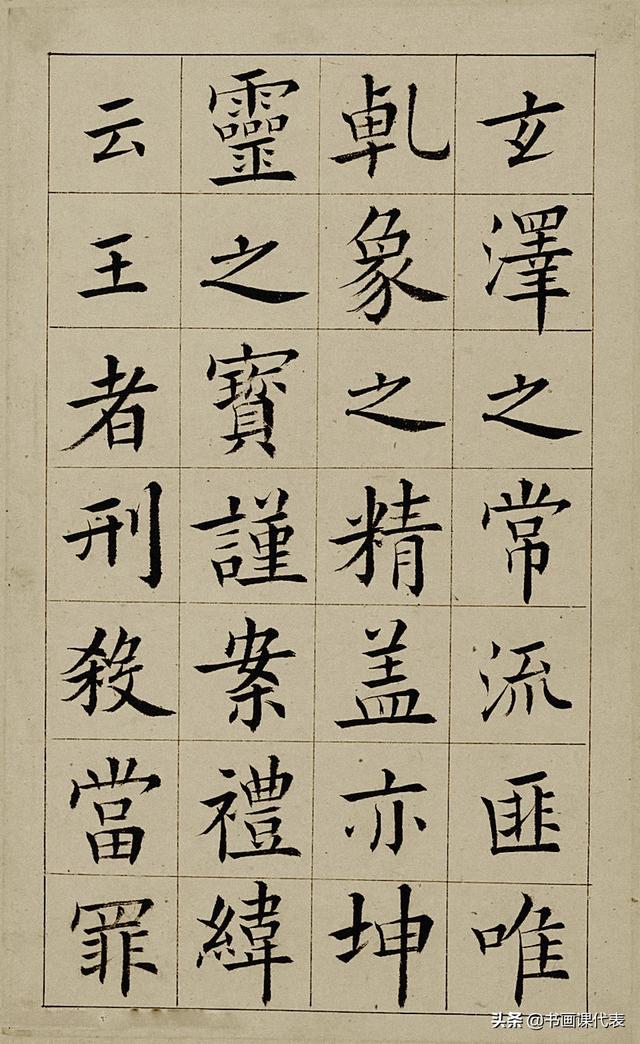 玄澤之常流匪唯
乹象之精盖亦坤
靈之寶謹案禮緯
云王者刑殺當罪
头条 @书画课代表